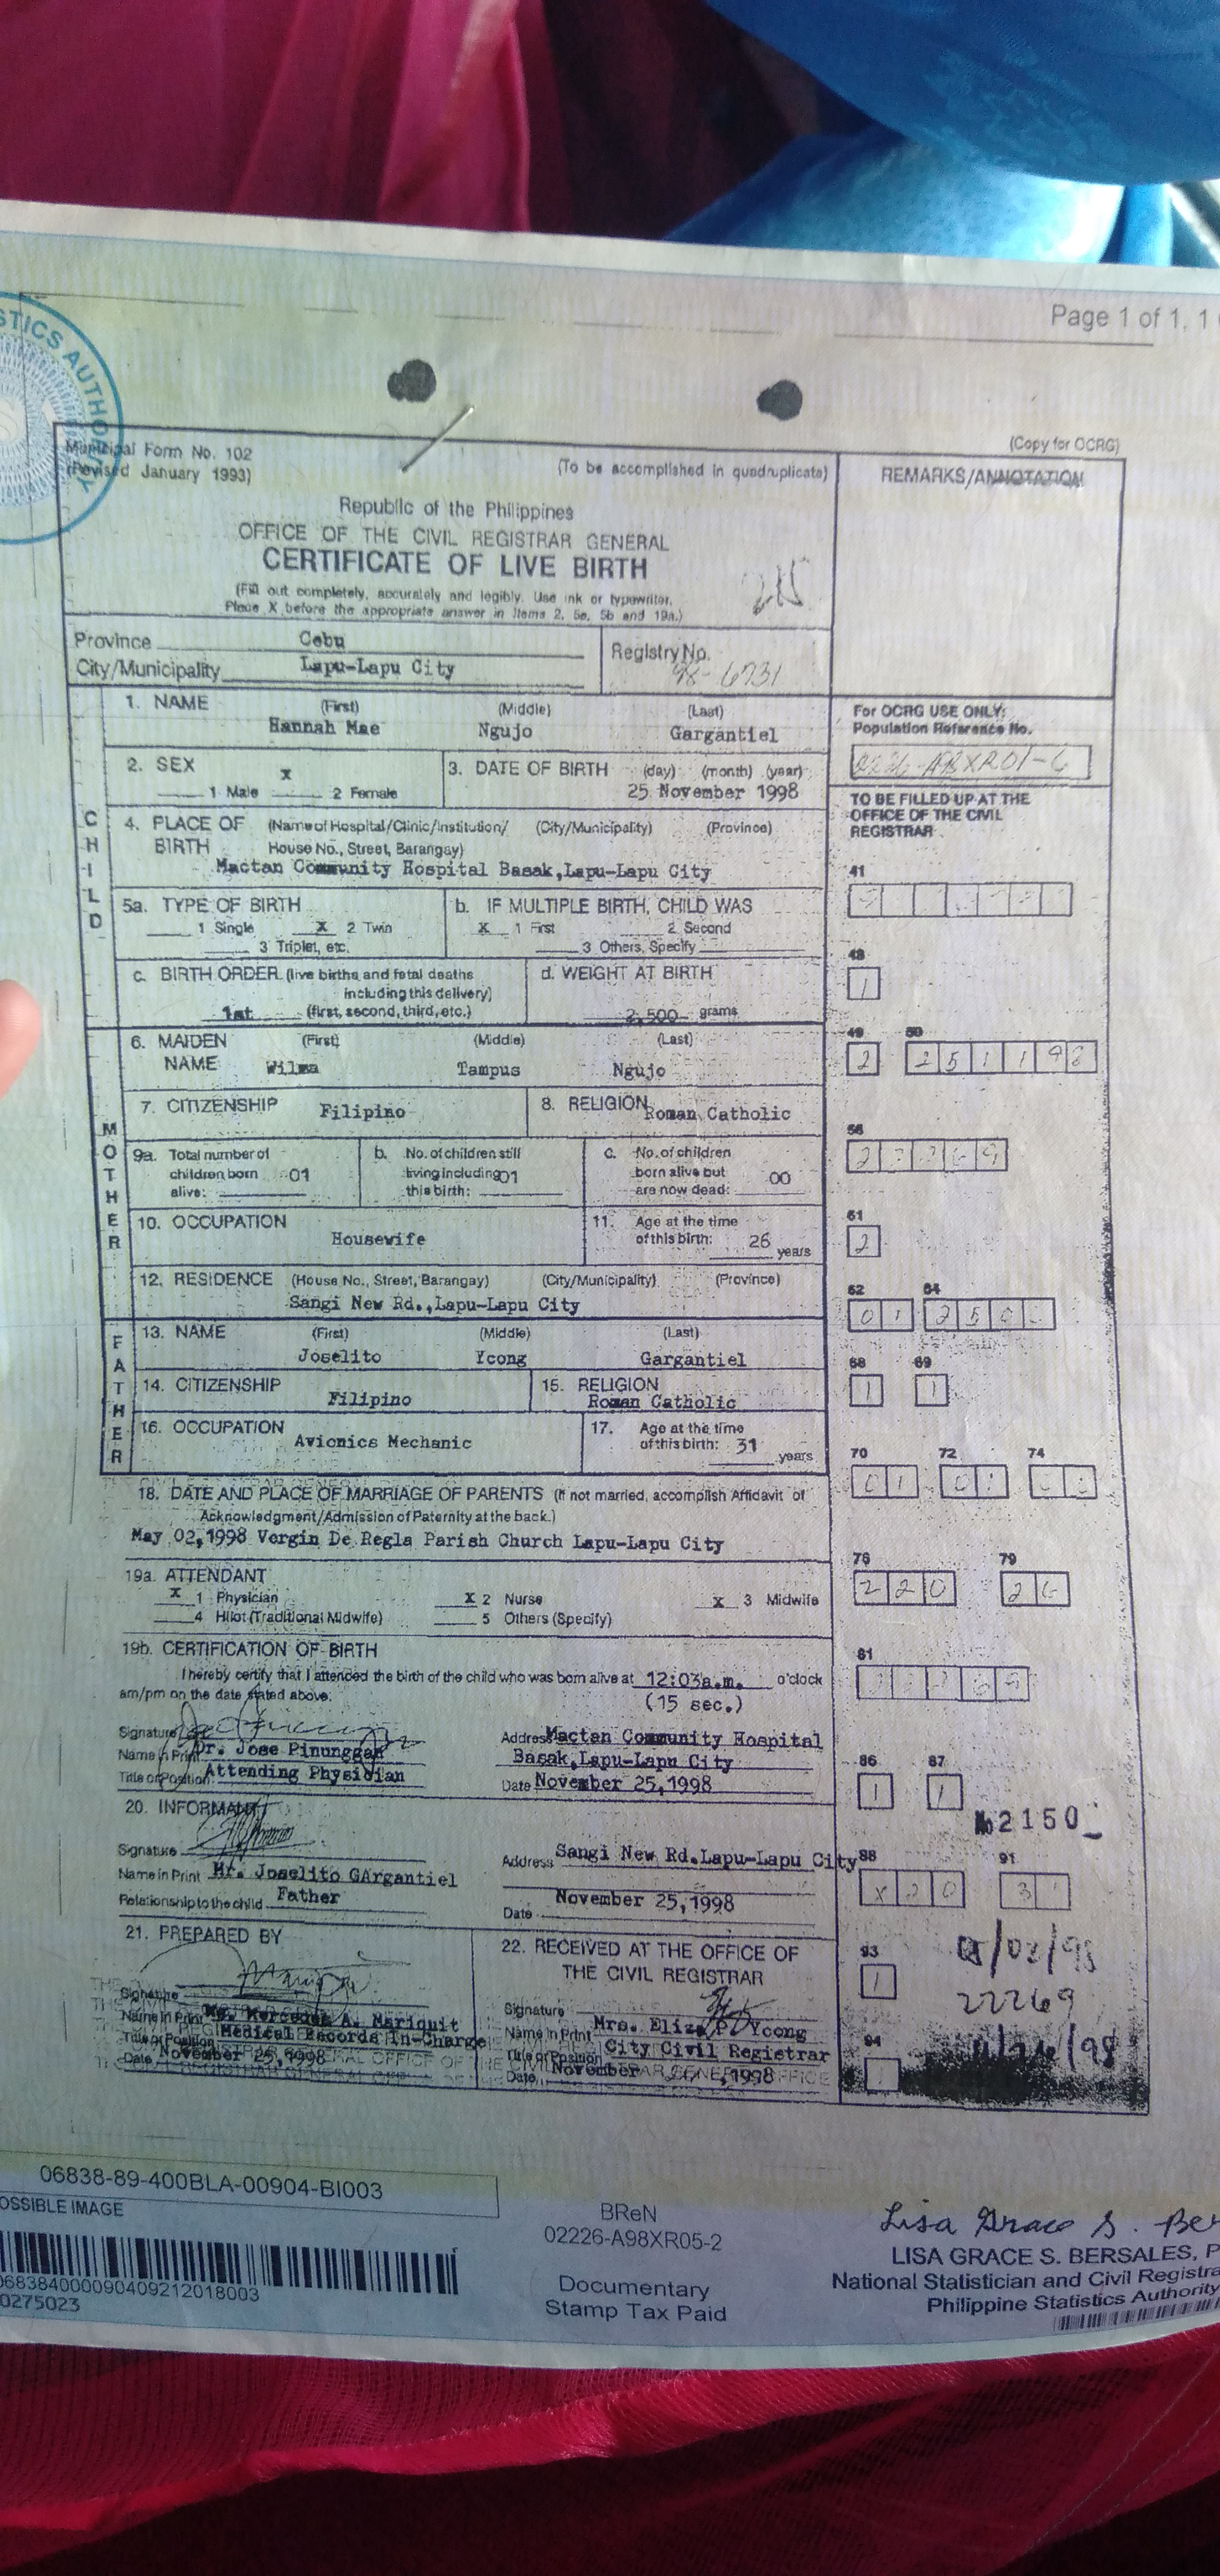 STICS AUTHORITY
Page 1 of 1, 1
(Copy for OCRG)
Municipal Form No. 102
(Revised January 1993)
(To be accomplished in quadruplicate)
REMARKS/ANNOTATION
Republic of the Philippines
OFFICE OF THE CIVIL REGISTRAR GENERAL
CERTIFICATE OF LIVE BIRTH
(Fill out completely, accurately and legibly. Use ink or typewriter.
Place X before the appropriate answer in items 2, 5a, 5b and 19a.)
215
Province Cebu
City/Municipality Lapu-Lapu City
Registry No.
98-6731
CHILD
1. NAME (First) (Middle) (Last)
Hannah Mae Ngujo Gargantiel
For OCRG USE ONLY:
Population Reference No.
2. SEX
X
1 Male 2 Female
3. DATE OF BIRTH (day) (month) (year)
25 November 1998
TO BE FILLED UP AT THE
OFFICE OF THE CIVIL
REGISTRAR
4. PLACE OF BIRTH (Name of Hospital/Clinic/Institution/ (City/Municipality) (Province)
House No., Street, Barangay)
Mactan Community Hospital Basak,Lapu-Lapu City
41
5a. TYPE OF BIRTH
1 Single X 2 Twin
3 Triplet, etc.
b. IF MULTIPLE BIRTH, CHILD WAS
X 1 First 2 Second
3 Others, Specify
48
1
c. BIRTH ORDER (live births and fetal deaths
including this delivery)
1st (first, second, third, etc.)
d. WEIGHT AT BIRTH
2,500 grams
MOTHER
6. MAIDEN NAME (First) (Middle) (Last)
Wilma Tampus Ngujo
49 50
2 251198
7. CITIZENSHIP Filipino
8. RELIGION Roman Catholic
56
9a. Total number of
children born 01
alive:
b. No. of children still
living including 01
this birth:
c. No. of children
born alive but 00
are now dead:
10. OCCUPATION
Housewife
11. Age at the time
of this birth: 26 years
61
2
12. RESIDENCE (House No., Street, Barangay) (City/Municipality) (Province)
Sangi New Rd.,Lapu-Lapu City
62 64
01 250
FATHER
13. NAME (First) (Middle) (Last)
Joselito Ycong Gargantiel
68 69
1 1
14. CITIZENSHIP Filipino
15. RELIGION
Roman Catholic
16. OCCUPATION Avionics Mechanic
17. Age at the time
of this birth: 31 years
70 72 74
01 01
18. DATE AND PLACE OF MARRIAGE OF PARENTS (If not married, accomplish Affidavit of
Acknowledgment/Admission of Paternity at the back.)
May 02,1998 Vergin De Regla Parish Church Lapu-Lapu City
76 79
220 26
19a. ATTENDANT
X 1 Physician X 2 Nurse X 3 Midwife
4 Hilot (Traditional Midwife) 5 Others (Specify)
19b. CERTIFICATION OF BIRTH
I hereby certify that I attended the birth of the child who was born alive at 12:03a.m. o'clock
am/pm on the date stated above.
(15 sec.)
81
Signature
Name in Print Dr. Jose Pinunggan
Title or Position Attending Physician
Address Mactan Community Hospital
Basak,Lapu-Lapu City
Date November 25,1998
86 87
1 1
No 2150
20. INFORMANT
Signature
Name in Print Mr. Joselito GArgantiel
Relationship to the child Father
Address Sangi New Rd.Lapu-Lapu City
November 25,1998
Date
88 91
x20 31
21. PREPARED BY
Signature
Name in Print Ms. Mercedes A. Mariquit
Title or Position Medical Records In-Charge
Date November 25,1998
22. RECEIVED AT THE OFFICE OF
THE CIVIL REGISTRAR
Signature
Name in Print Mrs. Eliza P. Ycong
Title or Position City Civil Registrar
Date November ,1998
93
1
22269
94
06838-89-400BLA-00904-BI003
OSSIBLE IMAGE
068384000090409212018003
0275023
BReN
02226-A98XR05-2
Documentary
Stamp Tax Paid
Lisa Grace S. Ber
LISA GRACE S. BERSALES, P
National Statistician and Civil Registra
Philippine Statistics Authority